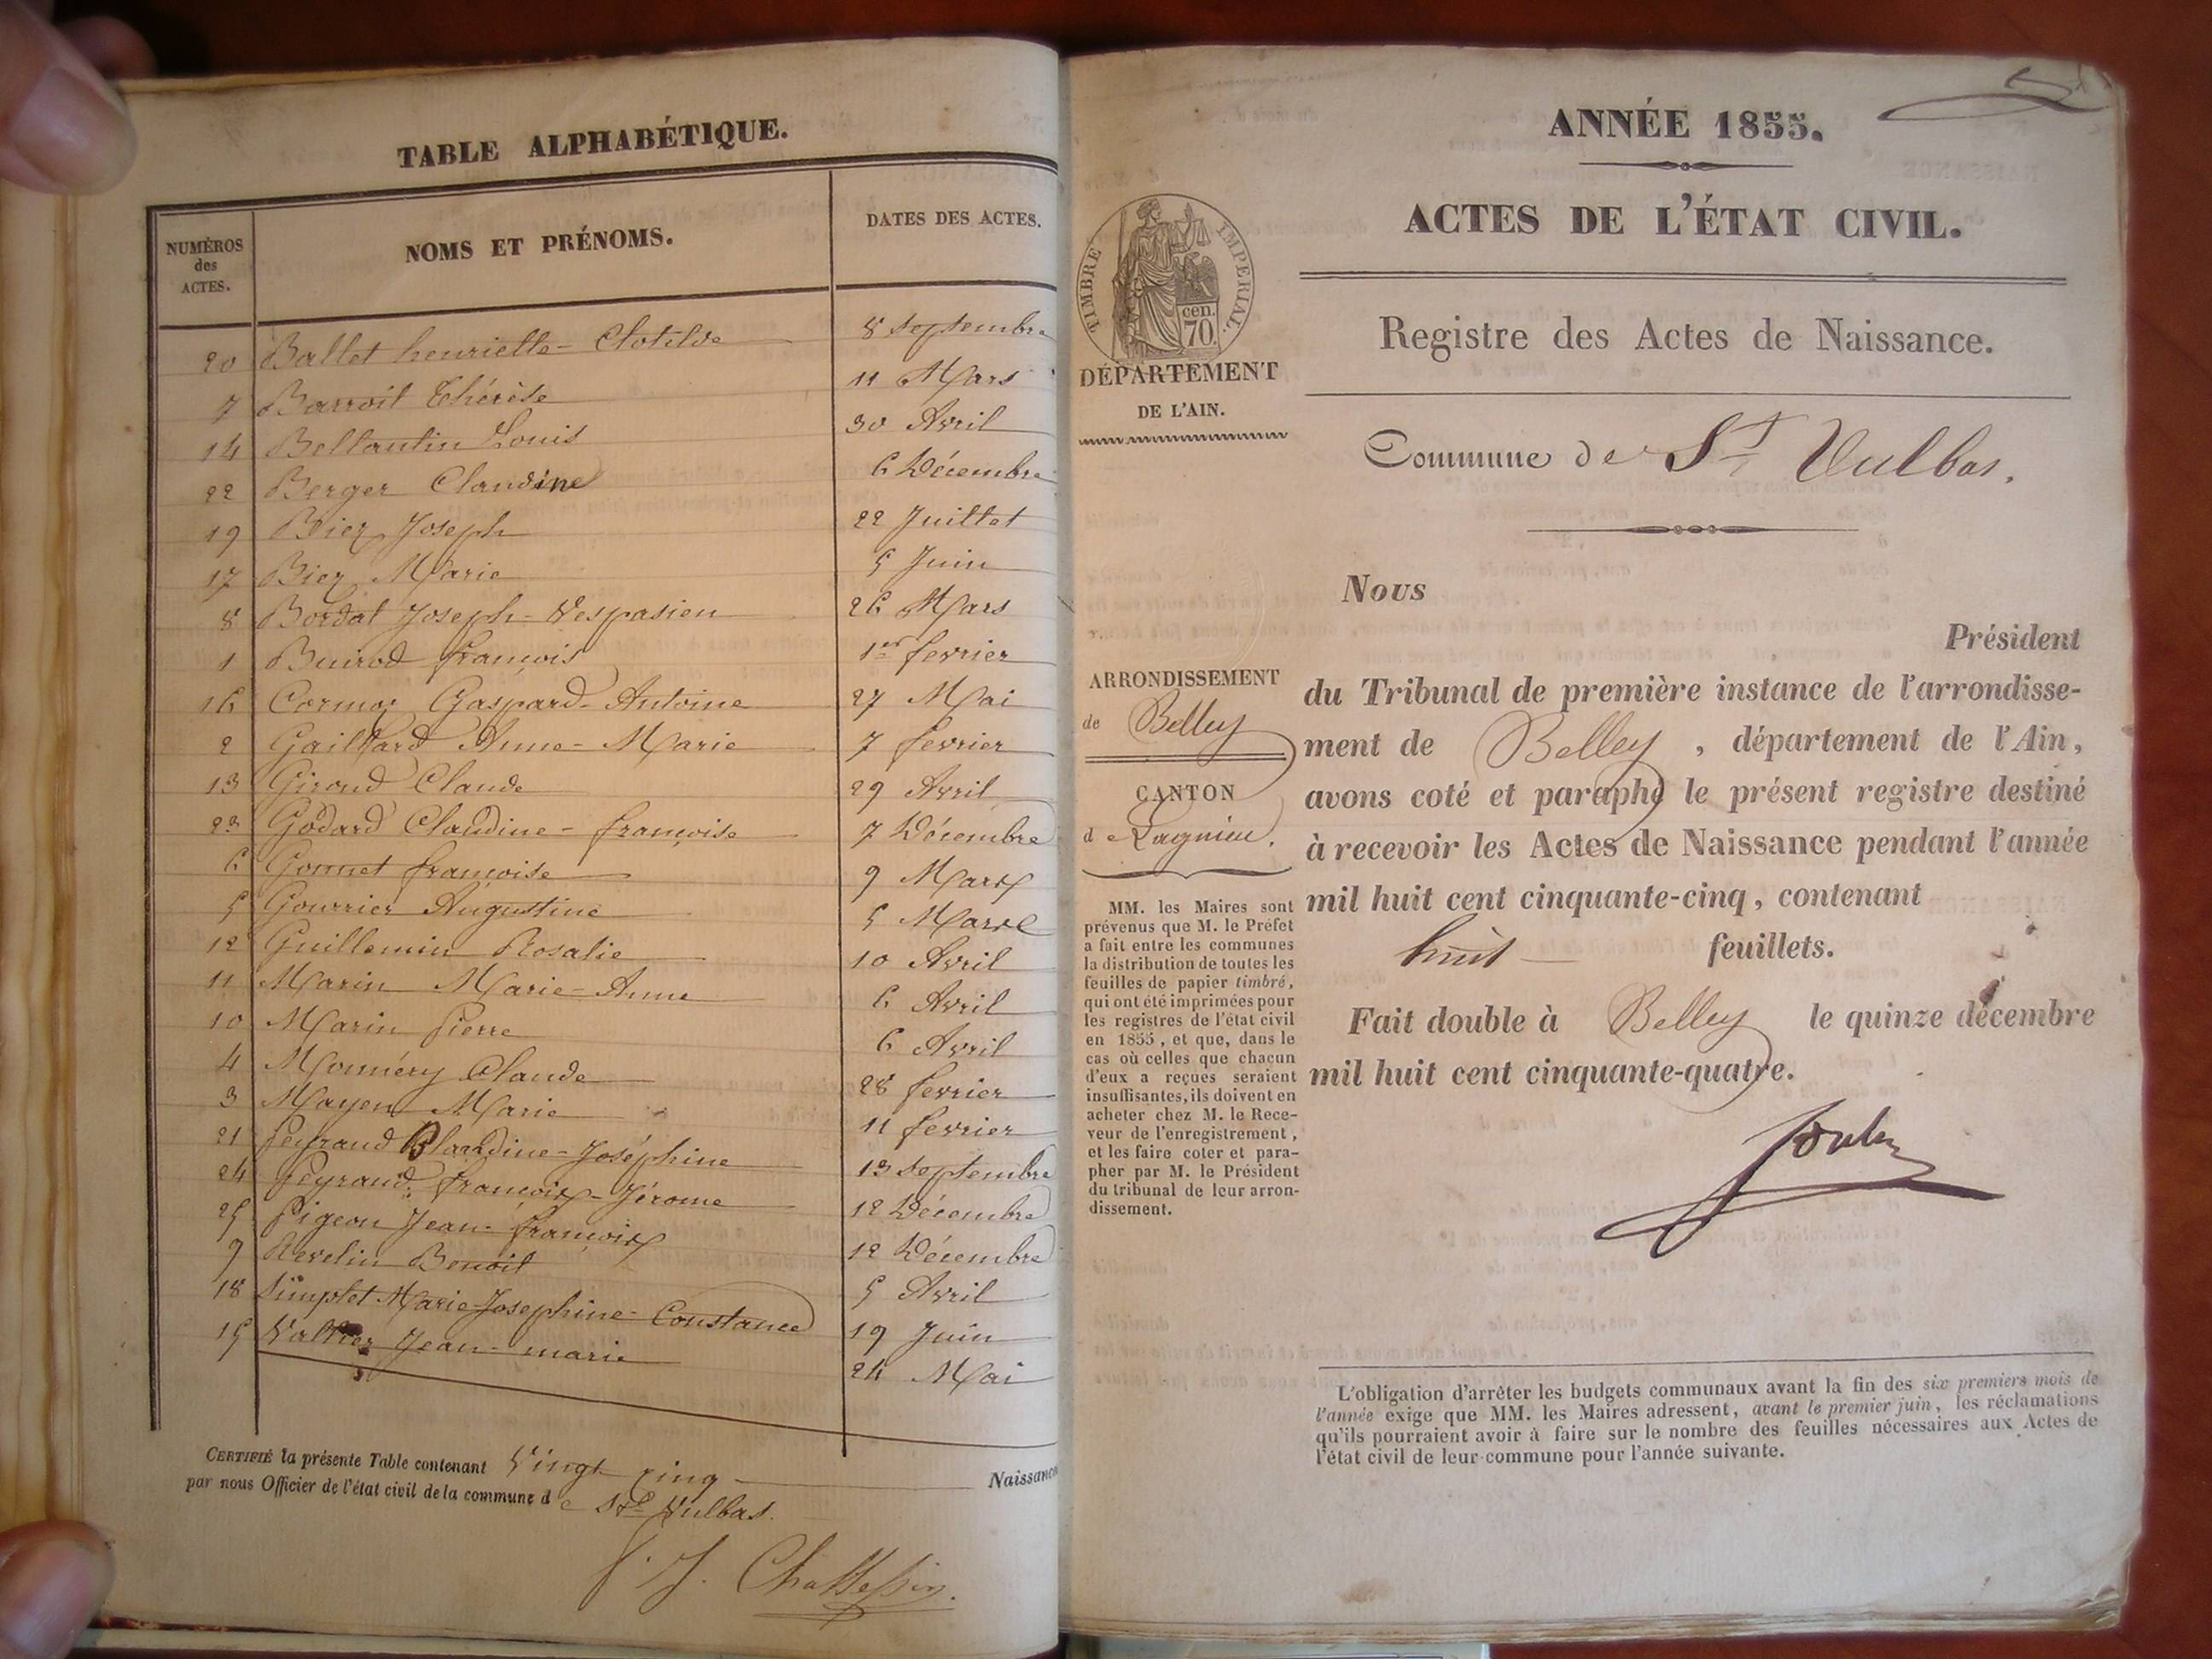 TABLE ALPHABÉTIQUE.
NUMÉROS des ACTES. NOMS ET PRÉNOMS. DATES DES ACTES.
20 Ballet henriette - Clotilde 8 septembre
7 Barroit Thérèse 11 Mars
14 Bellantin Louis 30 Avril
22 Berger Claudine 6 Décembre
19 Biez Joseph 22 Juillet
17 Biez Marie 5 Juin
8 Bordat Joseph - Vespasien 26 Mars
1 Buirod françois 1er fevrier
16 Cormoz Gaspard - Antoine 27 Mai
2 Gaillard Anne - Marie 7 fevrier
13 Giroud Claude 29 Avril
23 Godard Claudine - françoise 7 Décembre
6 Gonnet françoise 9 Mars
5 Gourrier Augustine 5 Mars
12 Guillemin Rosalie 10 Avril
11 Marin Marie - Anne 6 Avril
10 Marin Pierre 6 Avril
4 Monnéry Claude 28 fevrier
3 Mayen Marie 11 fevrier
21 Peyraud Claudine - Joséphine 13 septembre
24 Peyraud françois - Jérome 12 Décembre
25 Pigeon Jean - françois 12 Décembre
9 Revelin Benoit 5 Avril
18 Simplet Marie - Josephine - Constance 19 Juin
15 Jean - marie 24 Mai
CERTIFIÉ la présente Table contenant Vingt cinq Naissance
par nous Officier de l'état civil de la commune d e St Vulbas.
ANNÉE 1855.
ACTES DE L'ÉTAT CIVIL.
TIMBRE IMPERIAL.
cen.
70.
DÉPARTEMENT
DE L'AIN.
Registre des Actes de Naissance.
Commune de St Vulbas.
ARRONDISSEMENT
de Belley
CANTON
d e Lagnieu.
MM. les Maires sont
prévenus que M. le Préfet
a fait entre les communes
la distribution de toutes les
feuilles de papier timbré,
qui ont été imprimées pour
les registres de l'état civil
en 1855, et que, dans le
cas où celles que chacun
d'eux a reçues seraient
insuffisantes, ils doivent en
acheter chez M. le Rece-
veur de l'enregistrement,
et les faire coter et para-
pher par M. le Président
du tribunal de leur arron-
dissement.
Nous
Président
du Tribunal de première instance de l'arrondisse-
ment de Belley, département de l'Ain,
avons coté et paraphé le présent registre destiné
à recevoir les Actes de Naissance pendant l'année
mil huit cent cinquante-cinq, contenant
huit feuillets.
Fait double à Belley le quinze décembre
mil huit cent cinquante-quatre.
L'obligation d'arrêter les budgets communaux avant la fin des six premiers mois de
l'année exige que MM. les Maires adressent, avant le premier juin, les réclamations
qu'ils pourraient avoir à faire sur le nombre des feuilles nécessaires aux Actes de
l'état civil de leur commune pour l'année suivante.